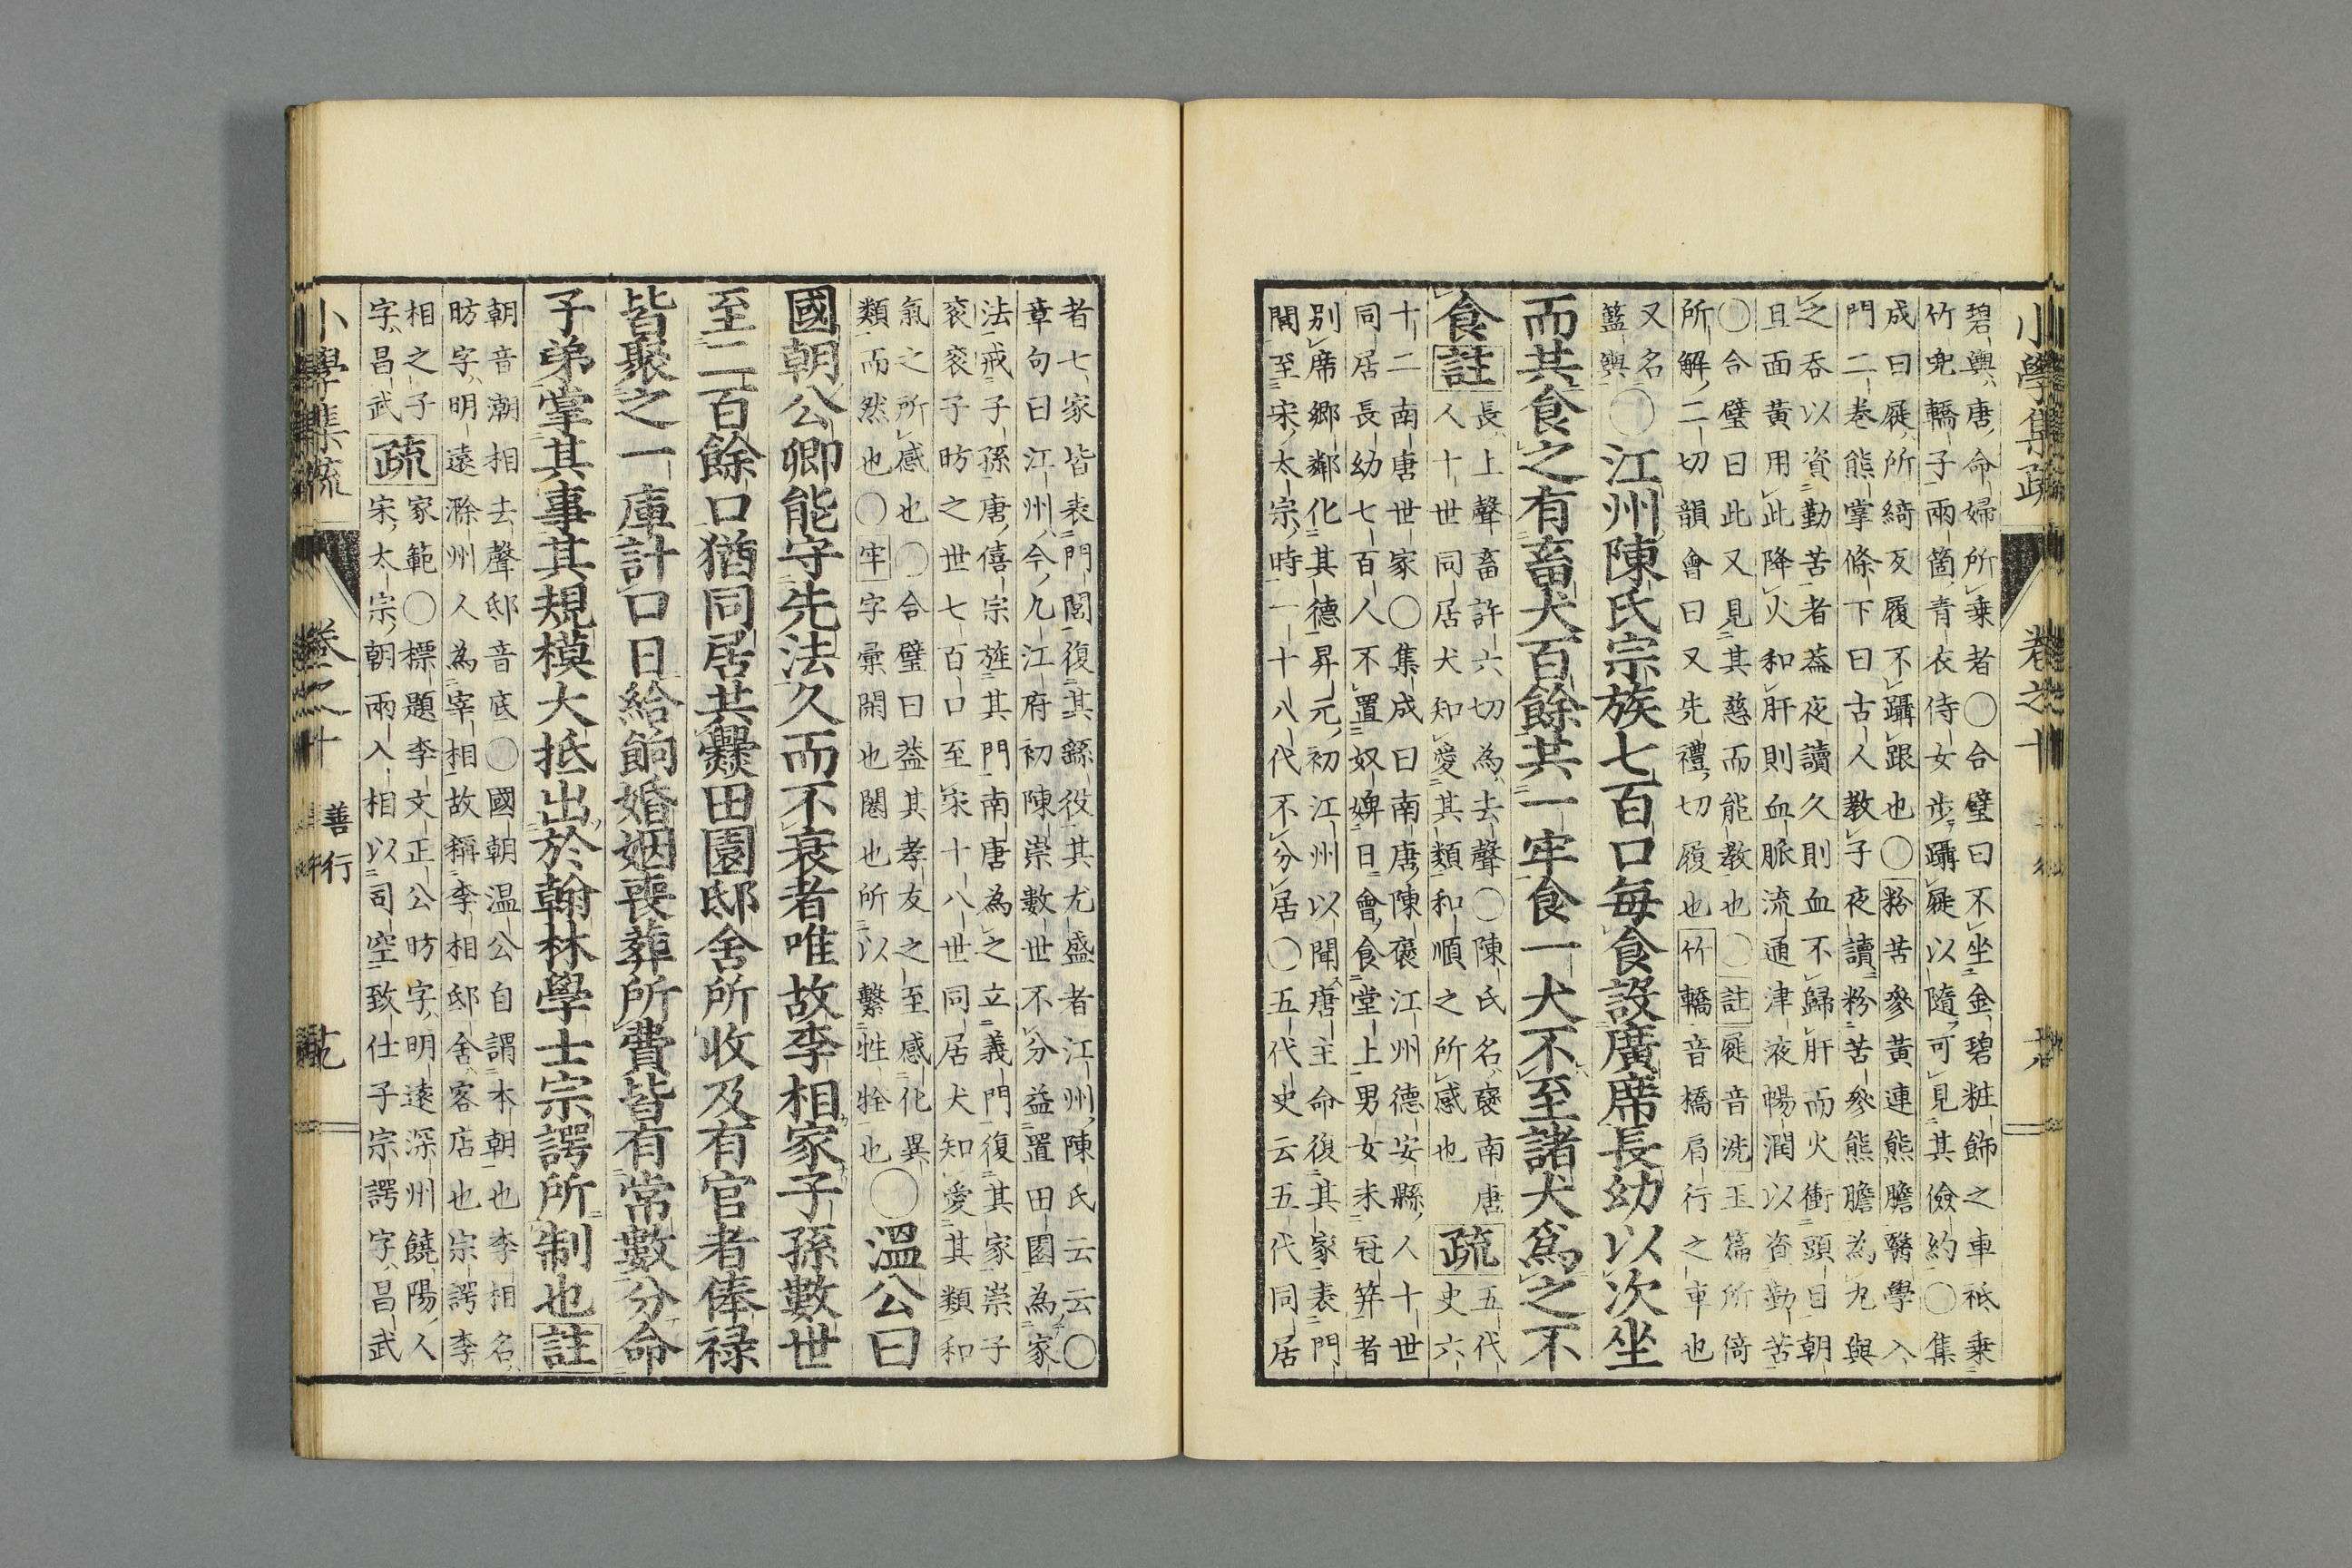 小學集疏 卷之十
碧輿唐命婦所乗者〇合璧曰不坐金碧粧飾之車祗乗
竹兜轎子兩箇青衣侍女步躡屣以隨可見其儉約〇集
成曰屣所綺反履不躡跟也〇粉苦參黃連熊膽醫學入
門二巻熊掌條下曰古人教子夜讀粉苦參熊膽為丸與
之吞以資勤苦者葢夜讀久則血不歸肝而火衝頭目朝
且面黃用此降火和肝則血脈流通津液暢潤以資勤苦
〇合璧曰此又見其慈而能教也〇註屣音洗玉篇所倚
所解二切韻會曰又先禮切履也竹轎音橋肩行之車也
又名
籃輿
〇江州陳氏宗族七百口每食設廣席長幼以次坐
而共食之有畜犬百餘共一牢食一犬不至諸犬爲之不
食註
長上聲畜許六切為去聲〇陳氏名襃南唐
人十世同居犬知愛其類和順之所感也
疏
五代
史六
十二南唐世家〇集成曰南唐陳襃江州德安縣人十世
同居長幼七百人不置奴婢日會食堂上男女未冠笄者
別席鄉鄰化其德昇元初江州以聞唐主命復其家表門
閭至宋太宗時一十八代不分居〇五代史云五代同居
者七家皆表門閭復其繇役其尤盛者江州陳氏云云〇
章句曰江州今九江府初陳崇數世不分益置田園為家
法戒子孫唐僖宗旌其門南唐為之立義門復其家崇子
衮衮子昉之世七百口至宋十八世同居犬知愛其類和
氣之所感也〇合璧曰益其孝友之至感化異
類而然也〇牢字彙閑也闌也所以繫牲牷也
〇溫公曰
國朝公卿能守先法久而不衰者唯故李相家子孫數世
至二百餘口猶同居共爨田園邸舍所收及有官者俸祿
皆聚之一庫計口日給餉婚姻喪葬所費皆有常數分命
子弟掌其事其規模大抵出於翰林學士宗諤所制也註
朝音潮相去聲邸音底〇國朝温公自謂本朝也李相名
昉字明遠滁州人為宰相故稱李相邸舍客店也宗諤李
相之子
字昌武
疏
家範〇標題李文正公昉字明遠深州饒陽人
宋太宗朝兩入相以司空致仕子宗諤字昌武
小學集疏 卷之十 善行